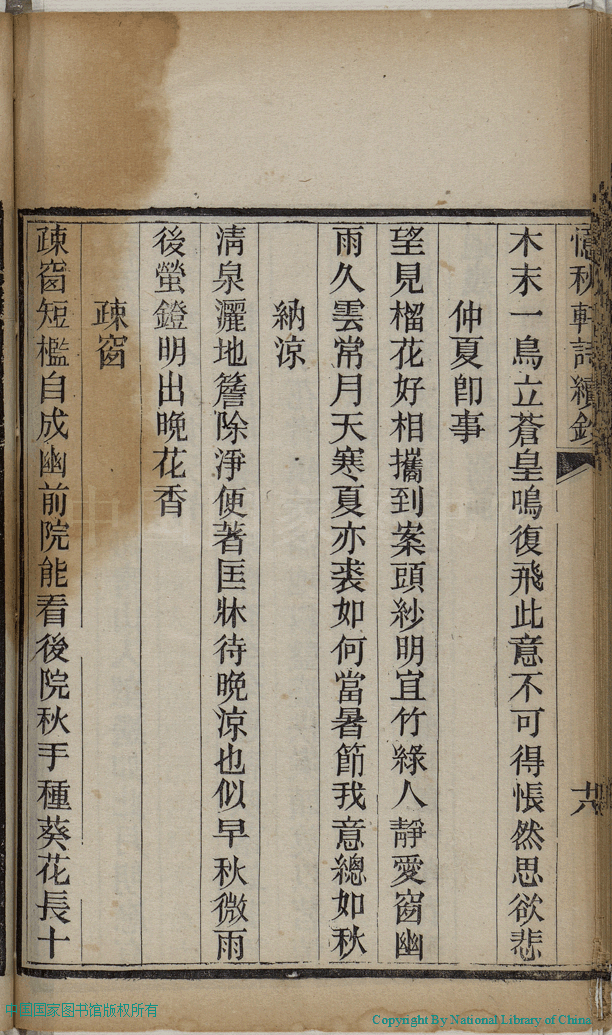 憶秋軒詩續鈔
十六
木末一鳥立蒼皇鳴復飛此意不可得悵然思欲悲
仲夏卽事
望見榴花好相攜到案頭紗明宜竹綠人靜愛窗幽
雨久雲常月天寒夏亦裘如何當暑節我意總如秋
納涼
淸泉灑地簷除淨便著匡牀待晚涼也似早秋微雨
後螢鐙明出晚花香
疎窗
疎窗短檻自成幽前院能看後院秋手種葵花長十
中国国家图书馆版权所有
Copyright By National Library of China.